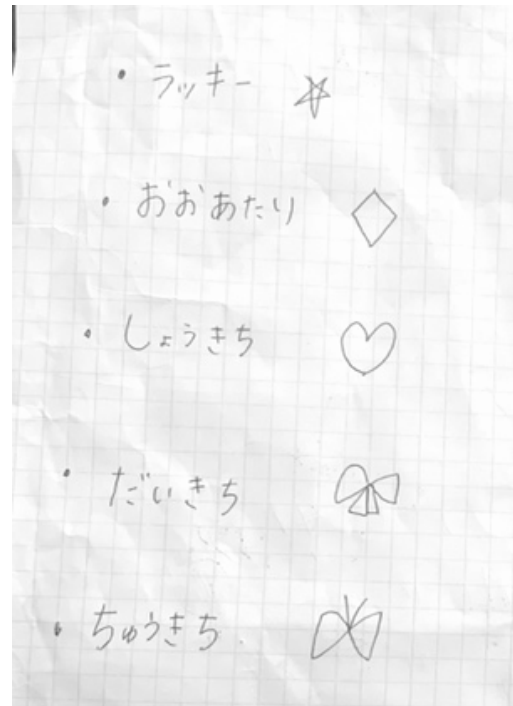 ・ラッキー ☆
・おおあたり ◇
・しょうきち ♡
・だいきち
・ちゅうきち